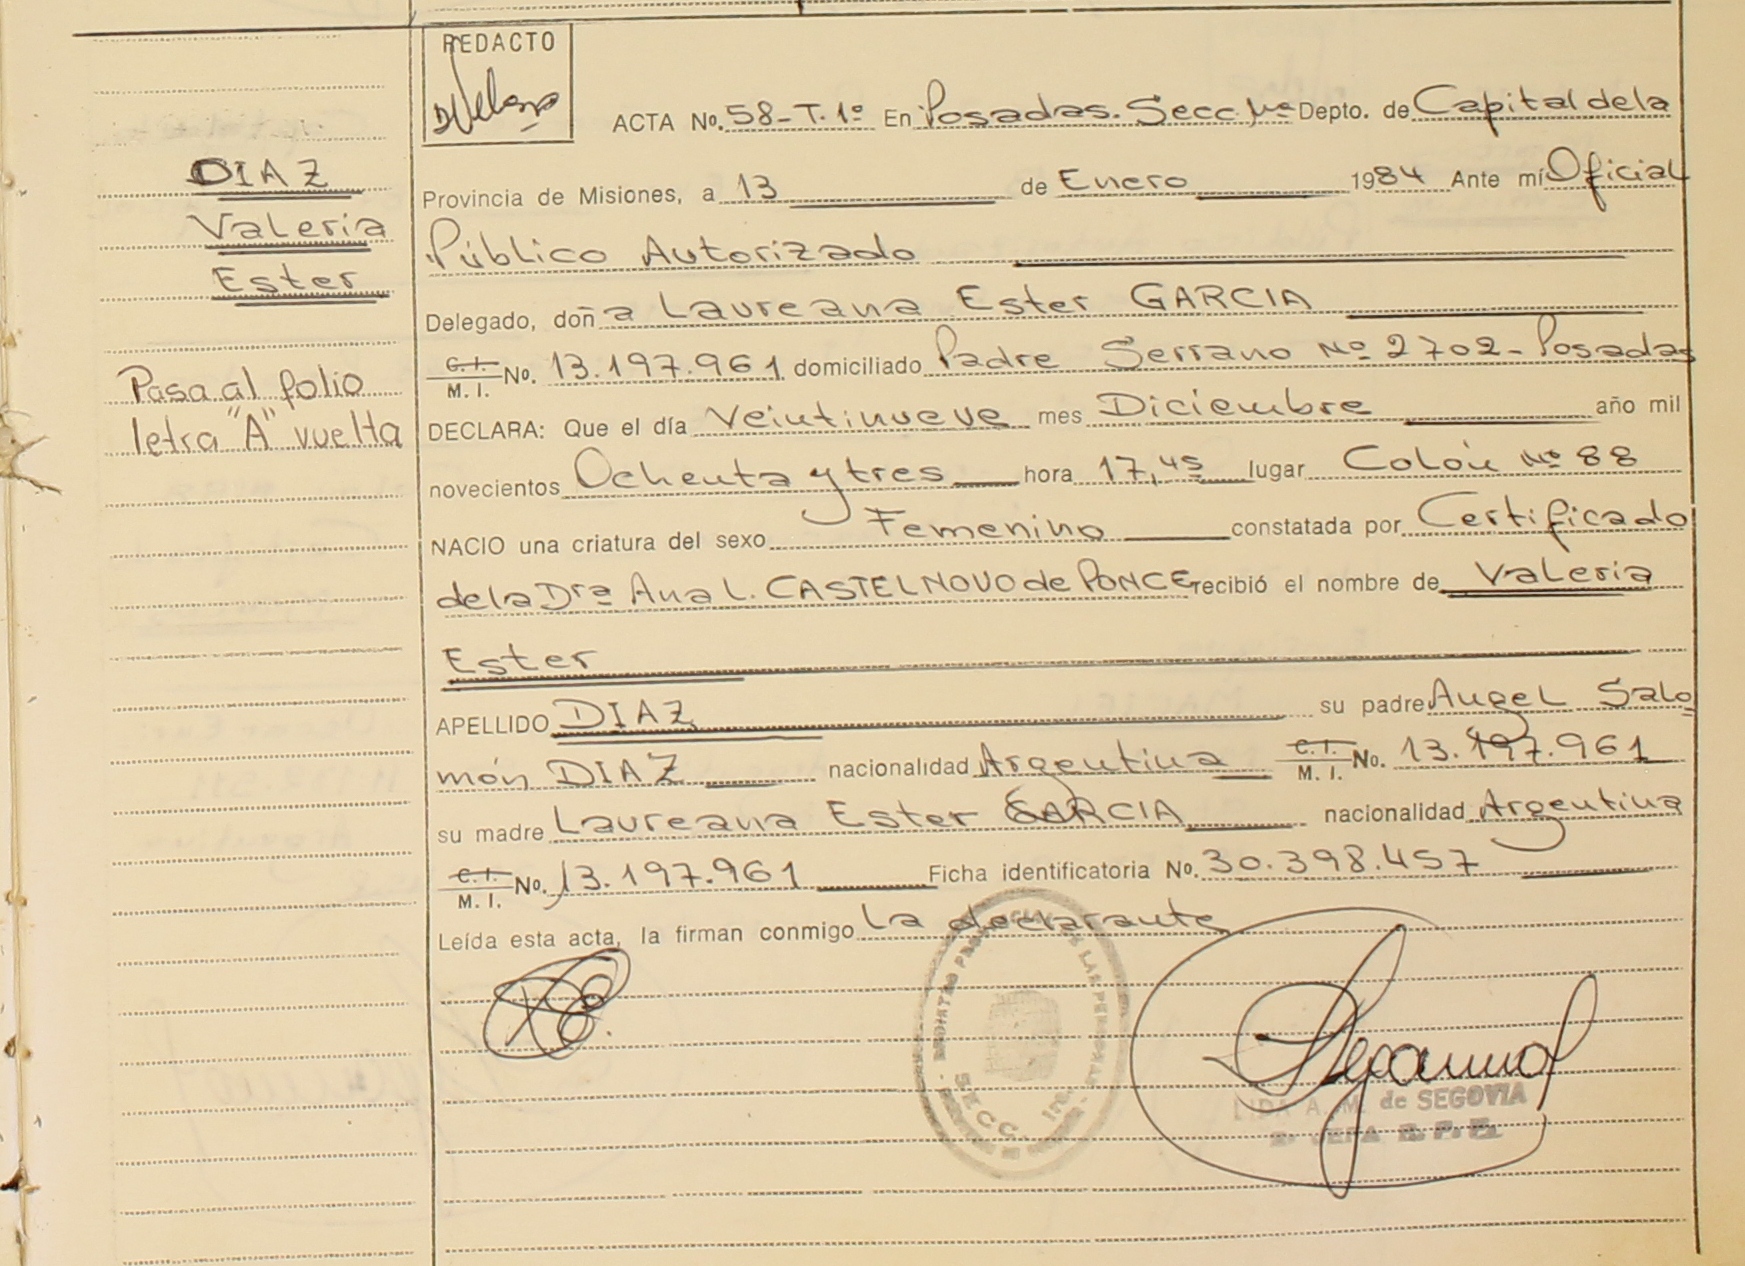 REDACTO
ACTA No. 58-T.1º En Posadas. Secc. 1ra Depto. de Capital de la
DIAZ
Valeria
Ester
Pasa al folio
letra "A" vuelta
Provincia de Misiones, a 13 de Enero 1984 Ante mí Oficial
Público Autorizado
Delegado, doña Laureana Ester GARCIA
C.I./M.I. No. 13.197.961 domiciliado Padre Serrano Nº 2702 - Posadas
DECLARA: Que el día Veintinueve mes Diciembre año mil
novecientos Ochenta y tres hora 17,45 lugar Colón Nº 88
NACIO una criatura del sexo Femenino constatada por Certificado
de la Dra Ana L. CASTELNOVO de PONCE recibió el nombre de Valeria
Ester
APELLIDO DIAZ su padre Angel Salo
món DIAZ nacionalidad Argentina C.I./M.I. No. 13.197.961
su madre Laureana Ester GARCIA nacionalidad Argentina
C.I./M.I. No. 13.197.961 Ficha identificatoria No. 30.398.457
Leída esta acta, la firman conmigo la declarante
SECC. 1ra.
LIDA A. M. de SEGOVIA
JEFA R. P.